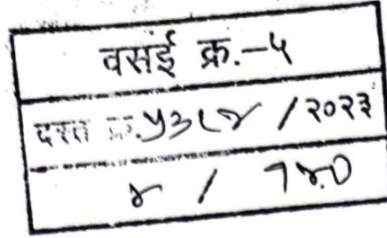 वसई क्र.-५
दस्त क्र.५३८४ / २०२३
४ / १४०